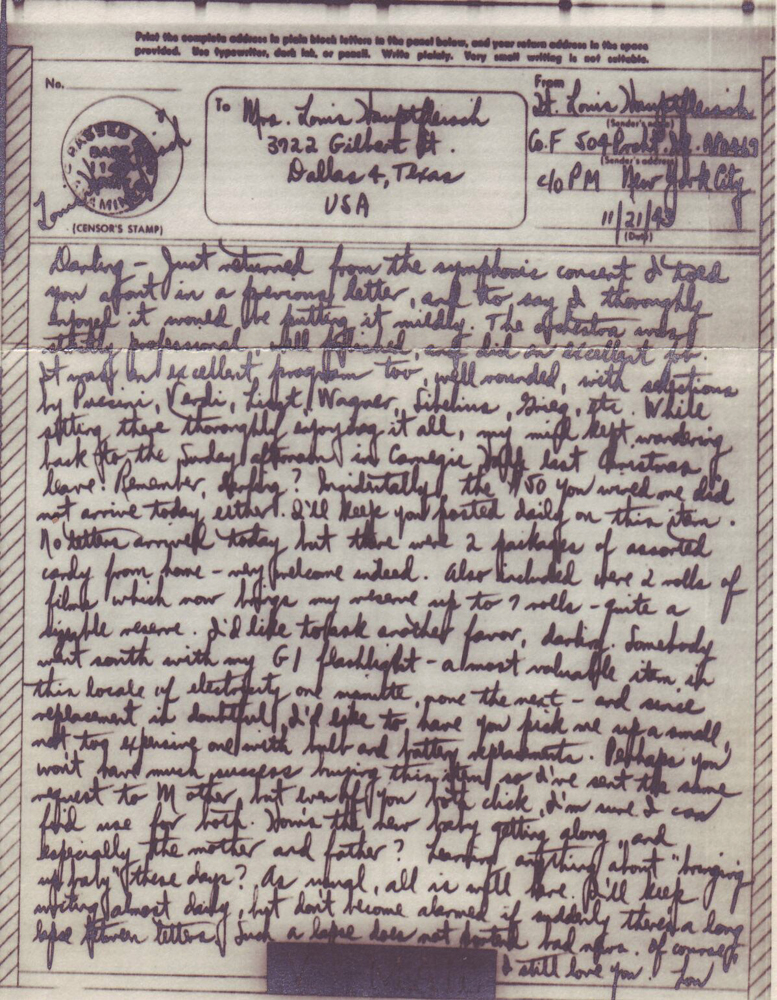 Print the complete address in plain block letters in the panel below, and your return address in the space
provided. Use typewriter, dark ink, or pencil. Write plainly. Very small writing is not suitable.
No.
To
From
Mrs. Louis Hauptfleisch
3922 Gilbert St.
Dallas 4, Texas
USA
Lt. Louis Hauptfleisch
(Sender's name)
Co. F 504 APO 469
(Sender's address)
c/o PM New York City
11/21/43
(Date)
PASSED
BASE
(CENSOR'S STAMP)
Darling - Just returned from the symphonic concert I'd told
you about in a previous letter, and to say I thoroughly
enjoyed it would be putting it mildly. The orchestra was
strictly professional, well and did an excellent job.
It was an excellent program too, well rounded, with selections
by Puccini, Verdi, Liszt, Wagner, Sibelius, Grieg, etc. While
sitting there thoroughly enjoying it all, my mind kept wandering
back to the Sunday afternoon in Carnegie Hall last Christmas
leave. Remember, darling? Incidentally, the $50 you wired me did
not arrive today either. I'll keep you posted daily on this item.
No letters arrived today but there were 2 packages of assorted
candy from home - very welcome indeed. Also included were 2 rolls of
films which now brings my reserve up to 7 rolls - quite a
sizeable reserve. I'd like to ask another favor, darling. Somebody
went south with my GI flashlight - a most valuable item in
this locale of electricity one minute, none the next - and since
replacement is doubtful, I'd like to have you pick me up a small,
not too expensive one with bulb and battery replacements. Perhaps you
won't have much success buying this item so I've sent the same
request to Mother but even if you both click, I'm sure I can
find use for both. How's the new baby getting along, and
especially the mother and father? Learning anything about "bringing
up baby" these days? As usual, all is well here. I'll keep
writing almost daily, but don't become alarmed if suddenly there's a long
lapse between letters. Such a lapse does not bad news. Of course,
I still love you. Lou